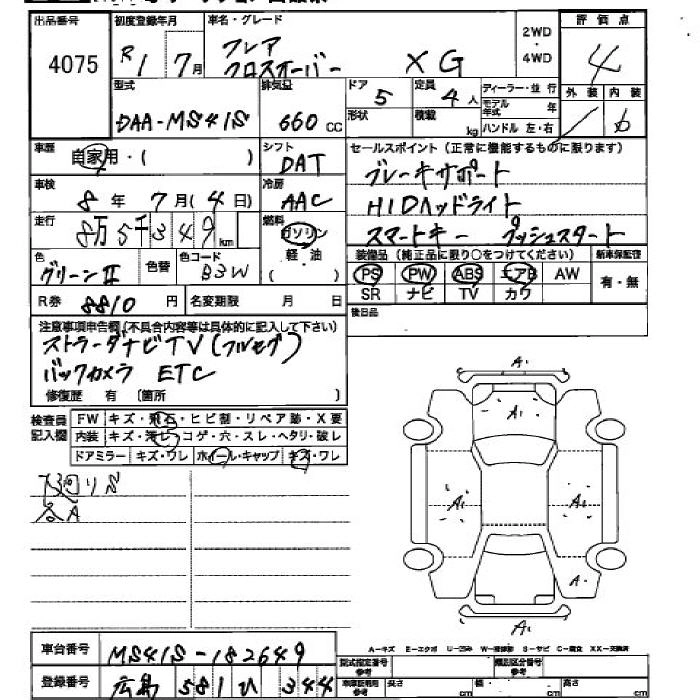 出品番号 初度登録年月 車名・グレード 2WD・4WD 評価点
4075 R1 7月 フレア クロスオーバー XG 4
型式 排気量 ドア 定員 ディーラー・並行 外装 内装
DAA-MS41S 660CC 5 4人 モデル年式 年
形状 積載 kg ハンドル 左・右 b
車歴 自家用・( ) シフト DAT セールスポイント(正常に機能するものに限ります)
ブレーキサポート
車検 8年 7月(4日) 冷房 AAC HIDヘッドライト
走行 8万5千349km 燃料 ガソリン 軽・油 ( ) スマートキー プッシュスタート
色 グリーンⅡ 色替 色コード B3W 装備品(純正品に限り○をつけてください) 新車保証書
PS PW ABS エアB AW 有・無
SR ナビ TV カワ
R券 8810円 名変期限 月 日 後日品
注意事項申告欄(不具合内容等は具体的に記入して下さい)
ストラーダナビTV(フルセグ)
バックカメラ ETC
修復歴 有 〔箇所 〕
検査員記入欄 FW キズ・飛石・ヒビ割・リペア跡・X要
内装 キズ・汚レ・コゲ・穴・スレ・ヘタリ・破レ
ドアミラー キズ・ワレ ホイール・キャップ キズ・ワレ
A・
A・
A・ A・
A・
A・
A-キズ E-エクボ U-凹み W-補修跡 S-サビ C-腐食 XX-交換済
車台番号 MS41S-182649 型式指定番号 参考 類別区分番号 参考
登録番号 広島 581 ひ 344 車庫証明用 参考 長さ cm 幅 cm 高さ cm